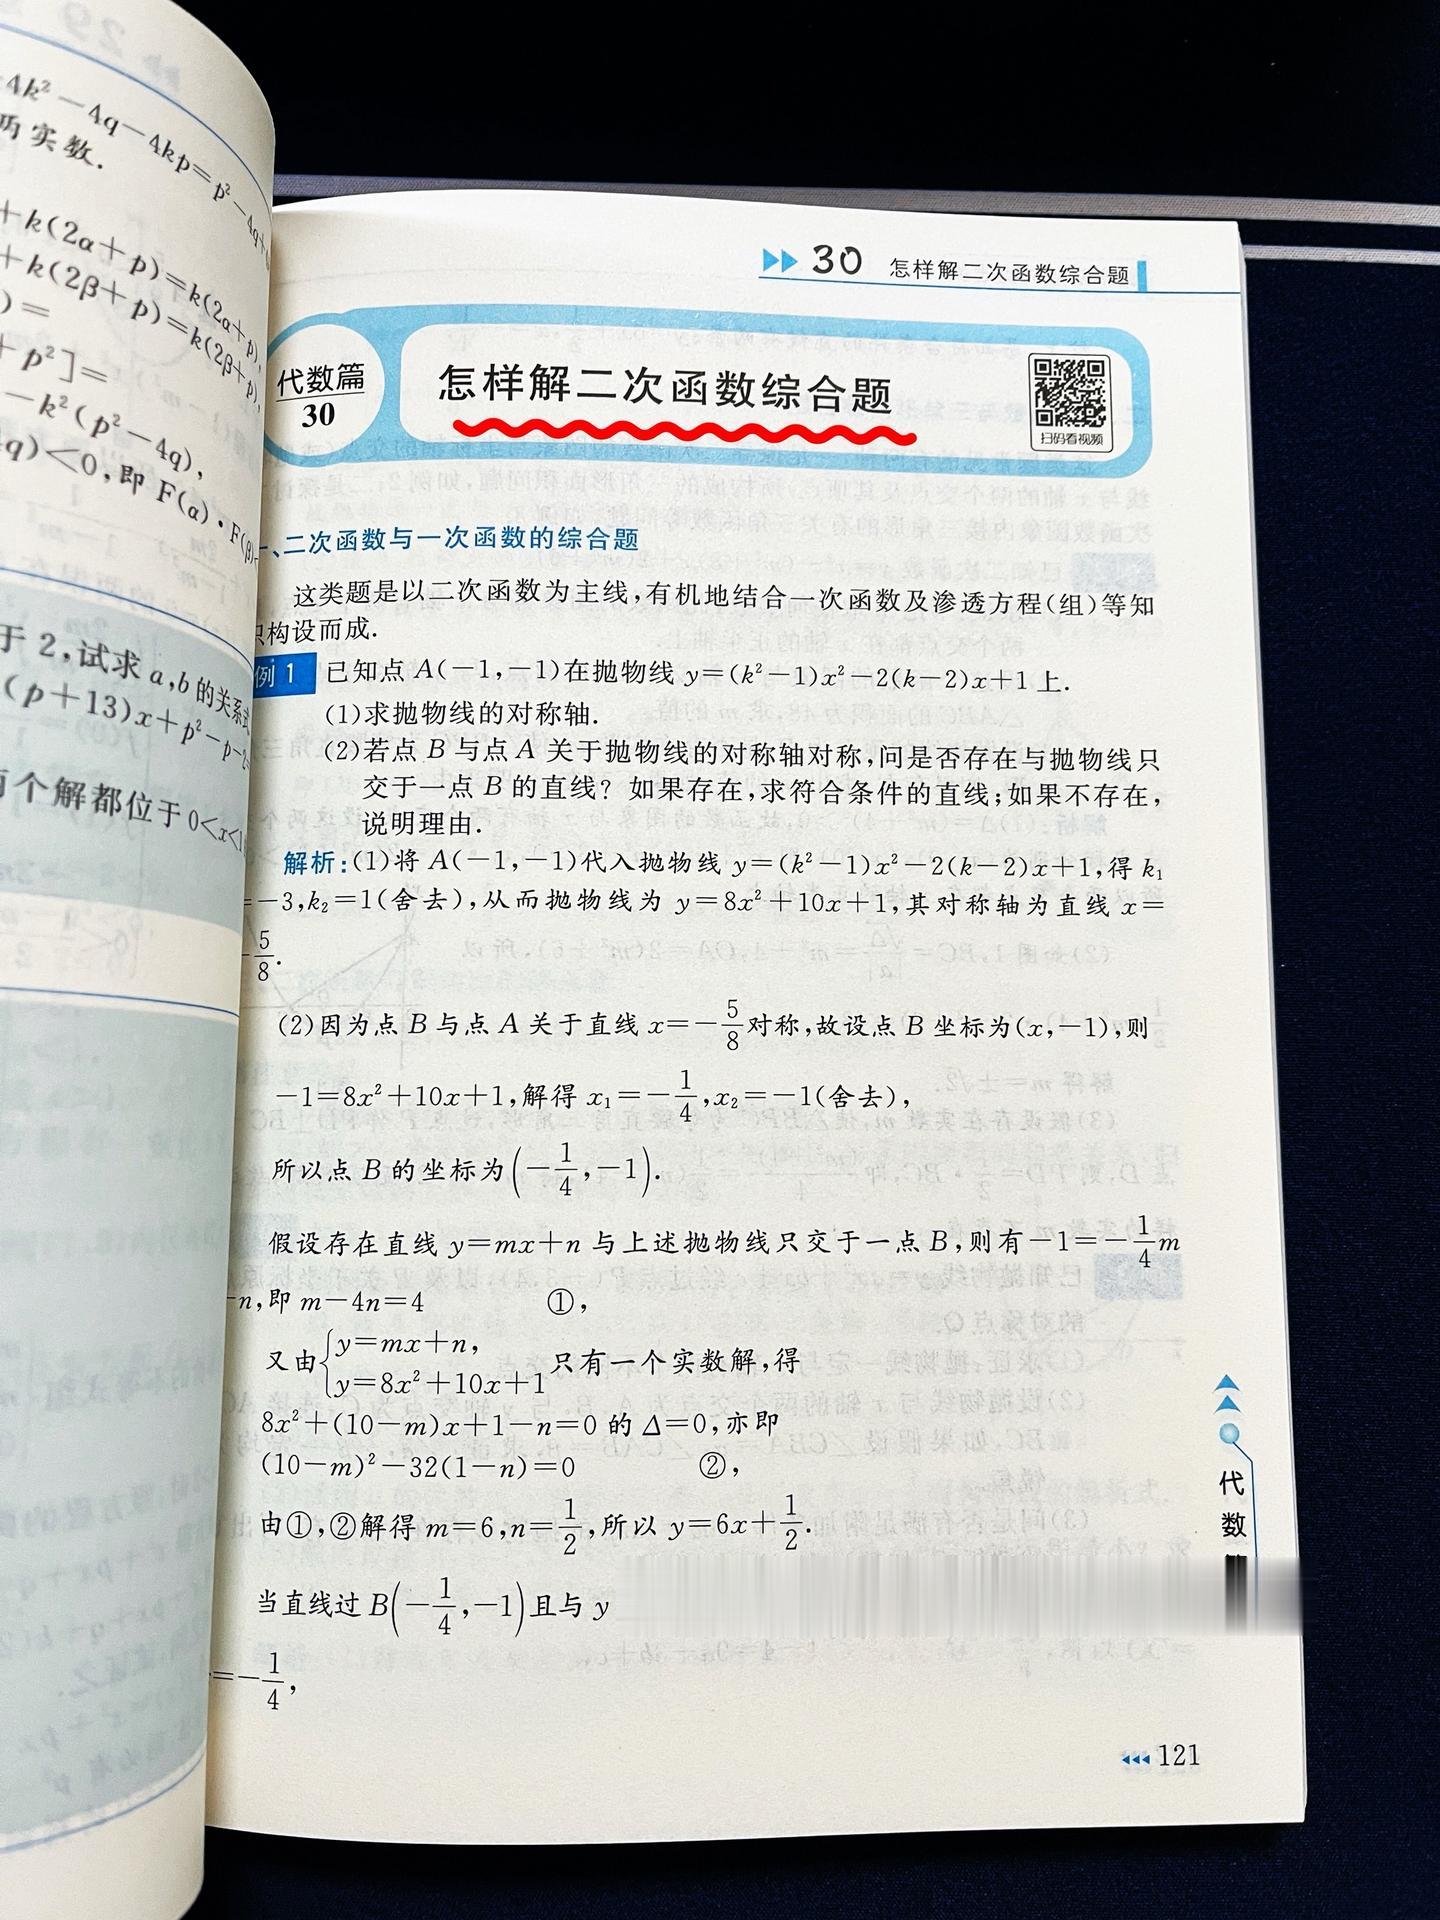 4k²-4q-4kp=p²-4q+
实数.
+k(2α+p)=k(2α+p),
+k(2β+p)=k(2β+p),
)=
+p²]=
-k²(p²-4q),
q)<0,即 F(α)·F(β)
于 2,试求 a,b 的关系式
(p+13)x+p²-p-2=
两个解都位于 0<x<1
30 怎样解二次函数综合题
代数篇
30
怎样解二次函数综合题
扫码看视频
一、二次函数与一次函数的综合题
这类题是以二次函数为主线,有机地结合一次函数及渗透方程(组)等知
识构设而成.
例 1 已知点 A(-1,-1)在抛物线 y=(k²-1)x²-2(k-2)x+1 上.
(1)求抛物线的对称轴.
(2)若点 B 与点 A 关于抛物线的对称轴对称,问是否存在与抛物线只
交于一点 B 的直线? 如果存在,求符合条件的直线;如果不存在,
说明理由.
解析:(1)将 A(-1,-1)代入抛物线 y=(k²-1)x²-2(k-2)x+1,得 k₁
=-3,k₂=1(舍去),从而抛物线为 y=8x²+10x+1,其对称轴为直线 x=
-5/8.
(2)因为点 B 与点 A 关于直线 x=-5/8对称,故设点 B 坐标为(x,-1),则
-1=8x²+10x+1,解得 x₁=-1/4,x₂=-1(舍去),
所以点 B 的坐标为(-1/4,-1).
假设存在直线 y=mx+n 与上述抛物线只交于一点 B,则有-1=-1/4m
-n,即 m-4n=4 ①,
又由{y=mx+n,
y=8x²+10x+1 只有一个实数解,得
8x²+(10-m)x+1-n=0 的 Δ=0,亦即
(10-m)²-32(1-n)=0 ②,
由①,②解得 m=6,n=1/2,所以 y=6x+1/2.
当直线过 B(-1/4,-1)且与 y
=-1/4,
代数
121